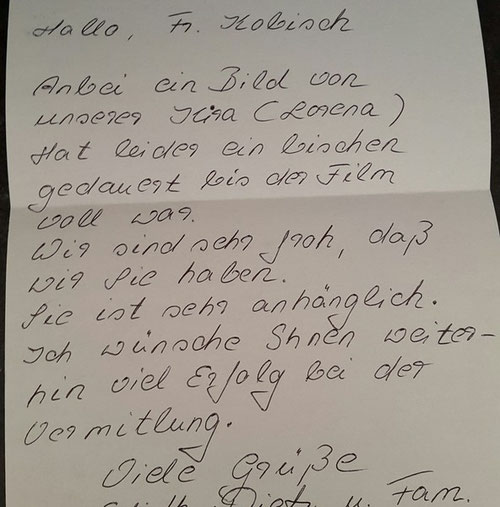 Hallo, Fr. Kobisch
Anbei ein Bild von
unserer Kira (Lorena)
Hat leider ein bischen
gedauert bis der Film
voll war.
Wir sind sehr froh, daß
wir Sie haben.
Sie ist sehr anhänglich.
Ich wünsche Ihnen weiter-
hin viel Erfolg bei der
Vermittlung.
Viele Grüße
u. Fam.